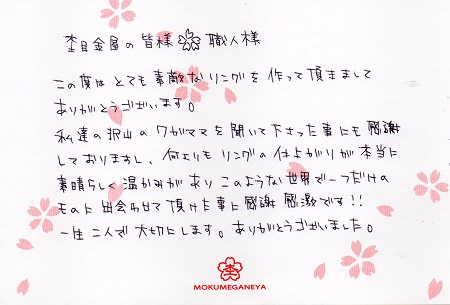 杢目金屋の皆様 職人様
この度は とても素敵なリングを作って頂きまして
ありがとうございます。
私達の沢山のワガママを聞いて下さった事にも感謝
しておりますし、何よりもリングの仕上がりが本当に
素晴らしく温かみがあり このような世界で一つだけの
モノに出会わせて頂けた事に感謝 感激です!!
一生二人で大切にします。ありがとうございました。
MOKUMEGANEYA